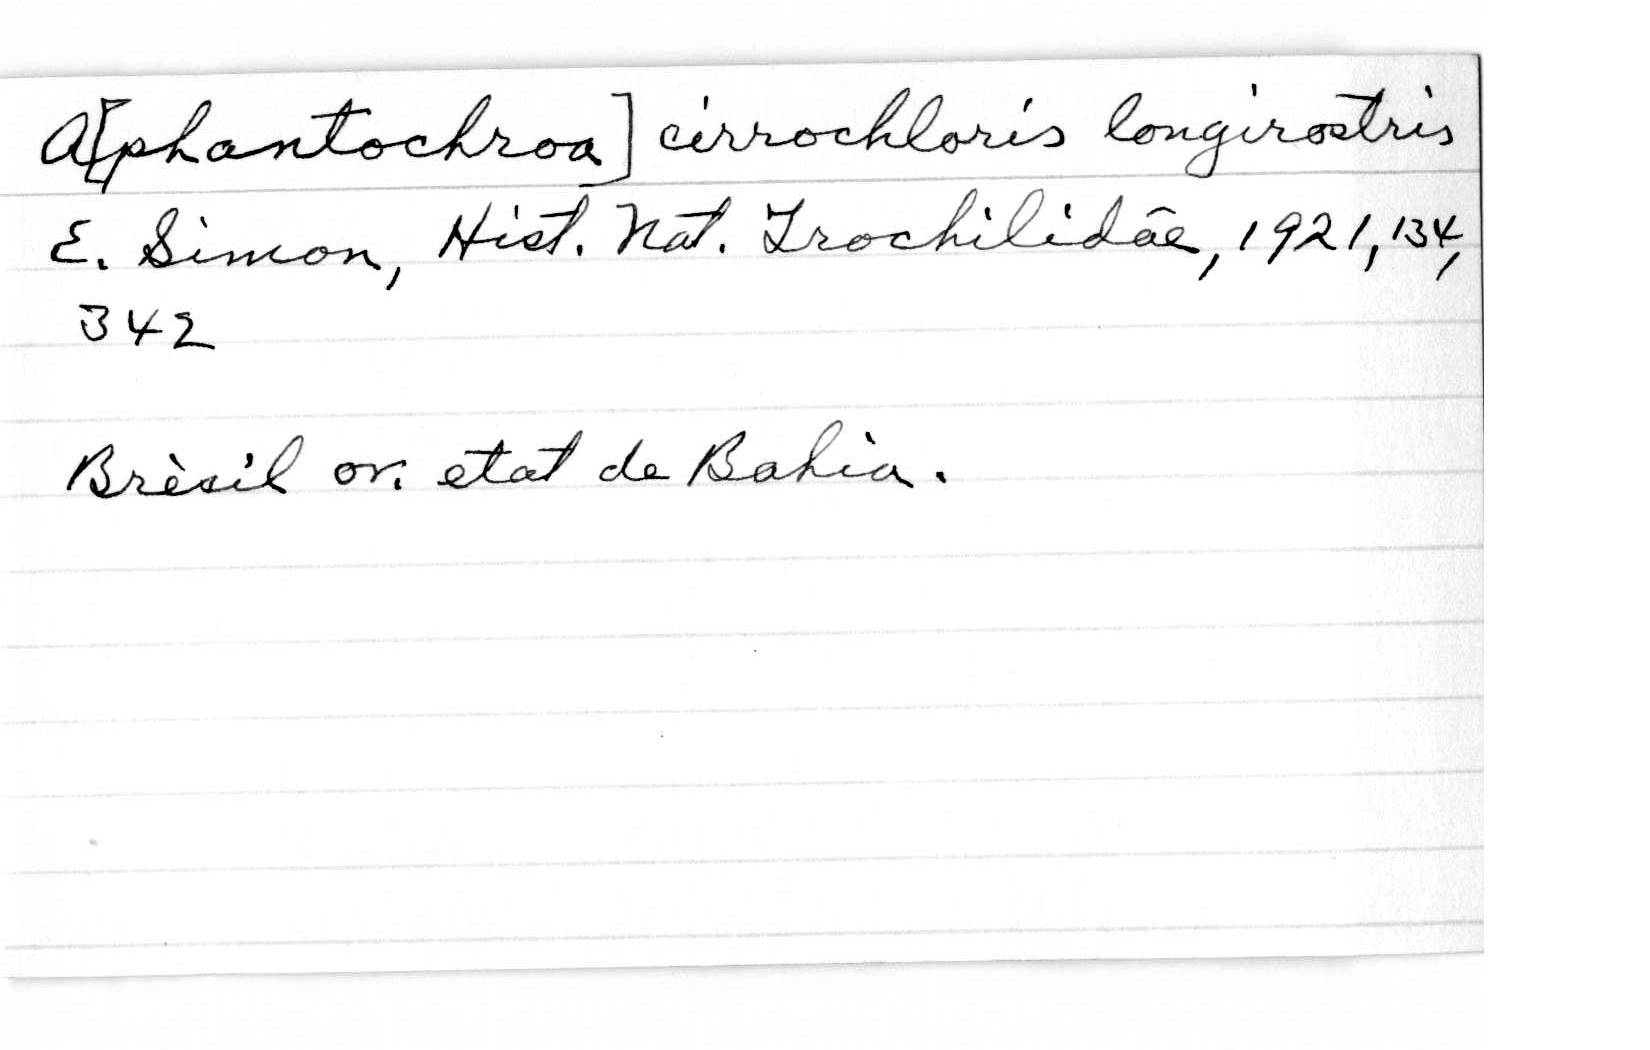 A[phantochroa] cirrochloris longirostris
E. Simon, Hist. Nat. Trochilidae, 1921, 134,
342
Brèsil or. etat de Bahia.